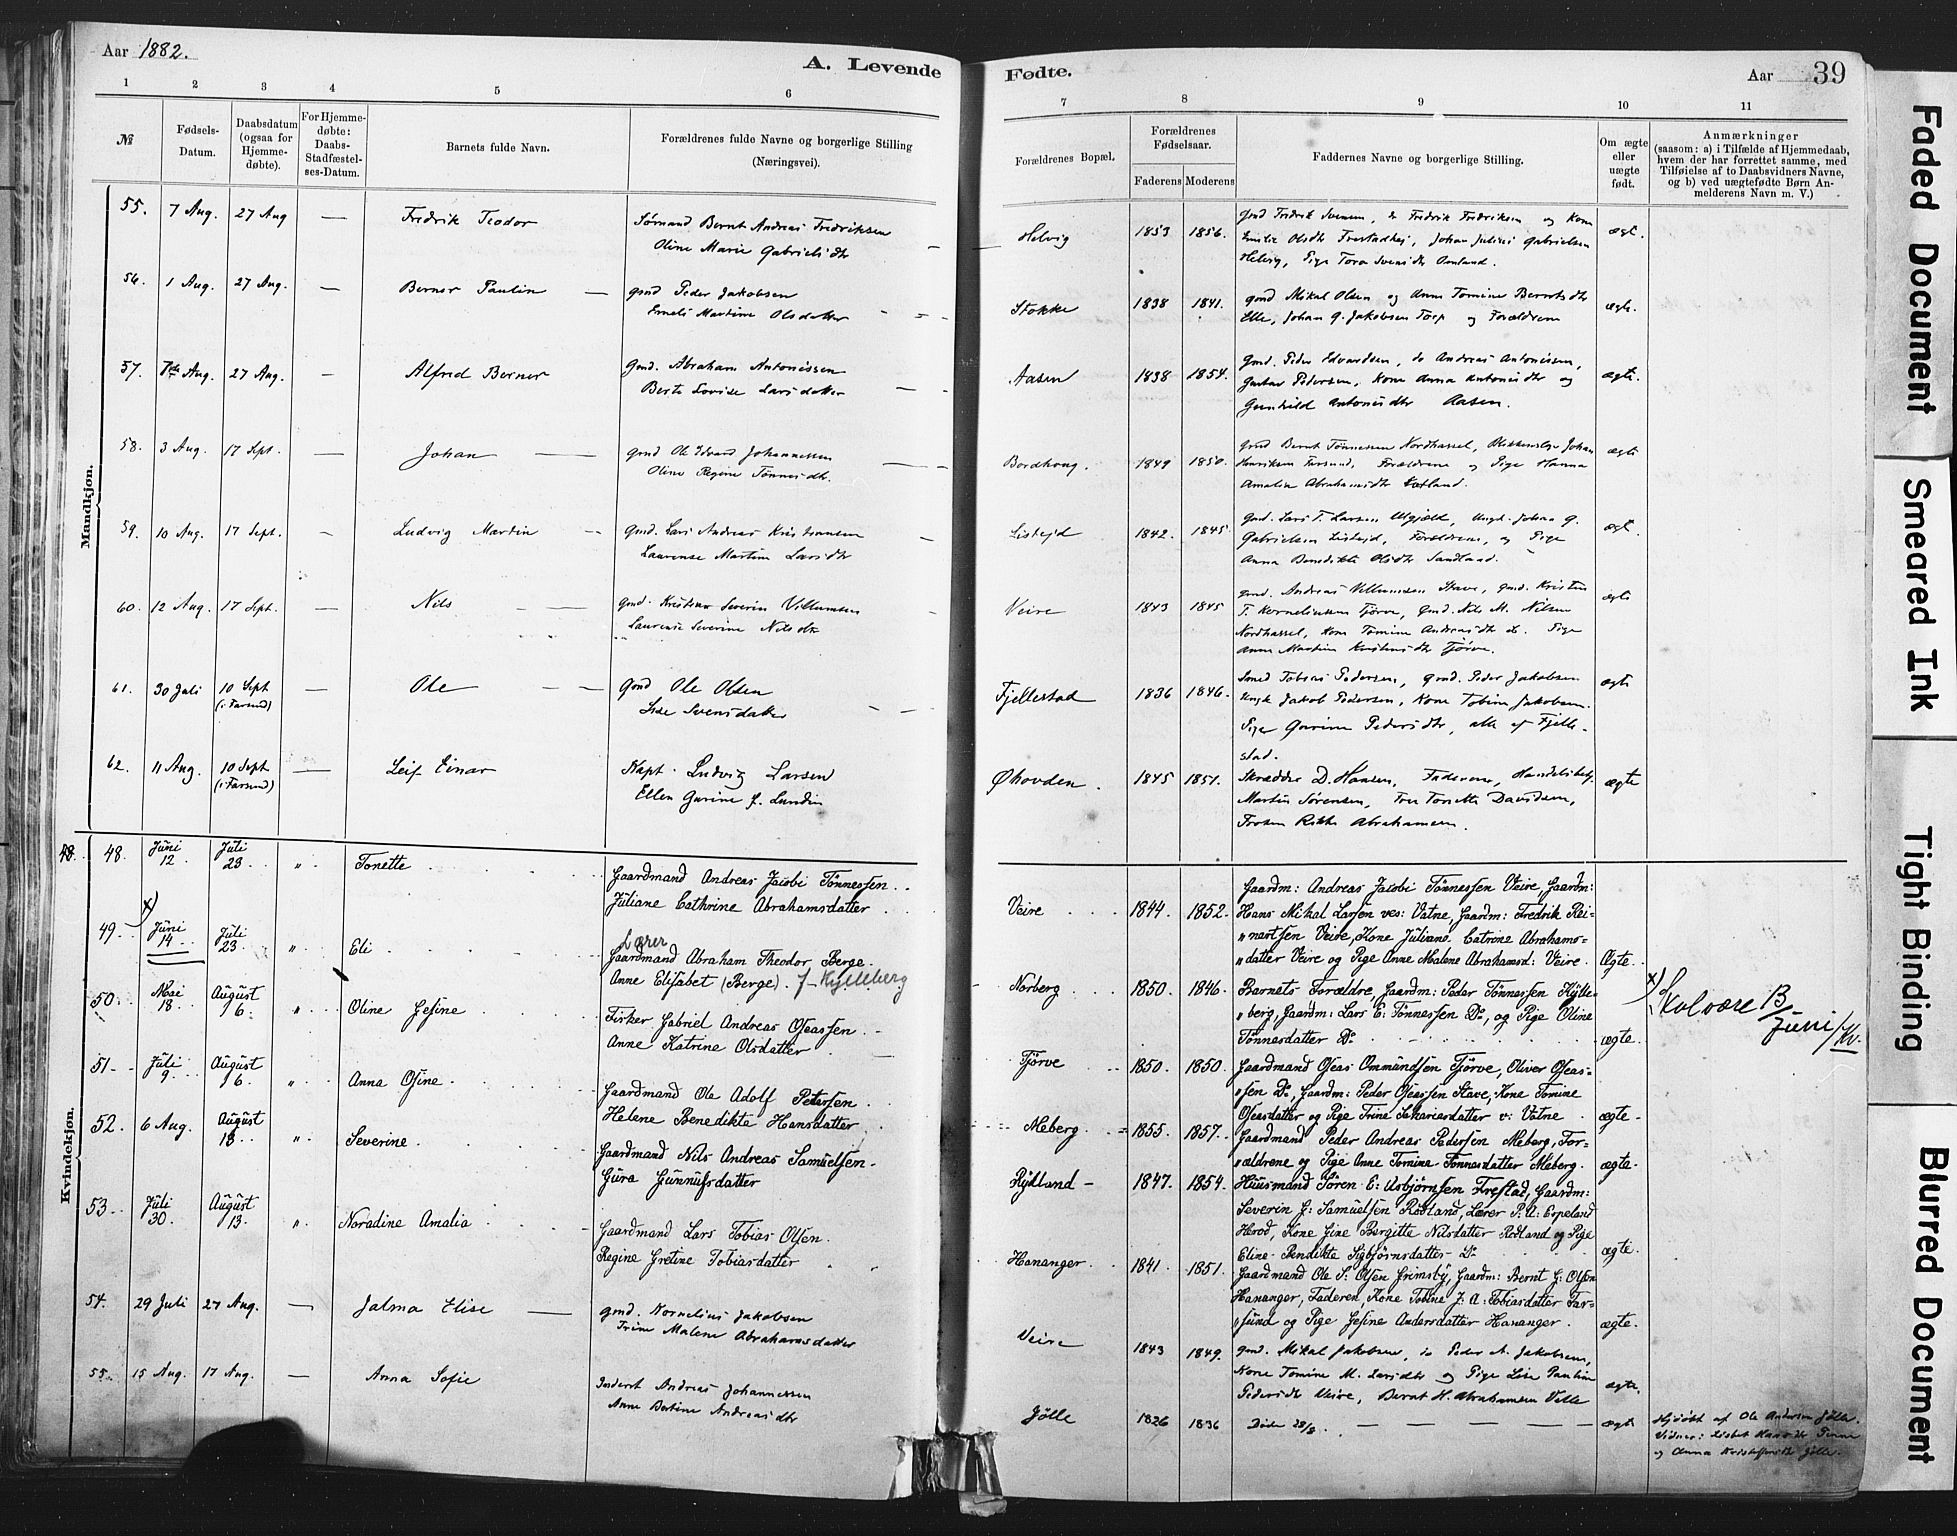 Aar 1882.
A. Levende
Fødte.
Aar 39
1 2 3 4 5 6
7 8 9 10 11
№
Fødsels-
Datum.
Daabsdatum
(ogsaa for
Hjemme-
døbte).
For Hjemme-
døbte:
Daabs-
Stadfæstel-
ses-Datum.
Barnets fulde Navn.
Forældrenes fulde Navne og borgerlige Stilling
(Næringsvei).
Forældrenes Bopæl.
Forældrenes
Fødselsaar.
Faderens Moderens
Faddernes Navne og borgerlige Stilling.
Om ægte
eller
uægte
født.
Anmærkninger
(saasom: a) i Tilfælde af Hjemmedaab,
hvem der har forrettet samme, med
Tilføielse af to Daabsvidners Navne,
og b) ved uægtefødte Børn An-
melderens Navn m. V.)
Mandkjøn.
55. 7 Aug. 27 Aug — Fredrik Teodor
Sømand Bernt Andreas Fredriksen
Oline Marie Gabrielsdtr
Helvig 1853 1856.
Gmd Fredrik Svensen, do Fredrik Fredriksen og Kone
Emilie Olsdtr Frestadhei, Johan Julius Gabrielsen
Helvig, Pige Tora Svensdtr Omland.
ægt.
56. 1 Aug. 27 Aug. — Berner Paulin
gmd Peder Jakobsen
Emeli Martine Olsdatter
Stokke 1838 1841.
gmd Mikal Olsen og Anna Tomine Berntsdtr
Elle, Johan G. Jakobsen Torp og Forældrene
ægte.
57. 7de Aug. 27 Aug. — Alfred Berner
Gmd. Abraham Antonissen
Berte Lovise Larsdatter
Aasen 1838 1854.
Gmd. Peder Edvardsen, do Andreas Antonissen,
Gustav Pedersen, Kone Anna Antonisdtr og
Gunhild Antonisdtr Aasen.
ægte.
58. 3 Aug. 17 Sept. — Johan
gmd Ole Edvard Johannessen
Oline Regine Tønnesdtr.
Bordhoug. 1849 1850.
gmd Bernt Tønnessen Nordhassel, Blikkenslager Johan
Henriksen Farsund, Forældrene og Pige Hanna
Amalia Abrahamsdtr Lætland.
ægte
59. 10 Aug. 17 Sept. — Ludvig Martin
gmd. Lars Andreas Kristensen
Laurense Martine Larsdtr
Listejd 1842. 1845.
Gmd. Lars T. Larsen Ulgjæll, Ungk. Johan G.
Gabrielsen Listejd, Forældrene, og Pige
Anna Benedikte Olsdtr Sandland.
ægt
60. 12 Aug. 17 Sept. — Nils
gmd. Kristian Severin Villumsen
Laurense Severine Nilsdtr
Veire 1843 1845
gmd. Andreas Villumsen Stave, gmd. Kristen
T. Korneliussen Tjørve, Gmd. Nils M. Nilsen
Nordhassel, Kone Tomine Andreasdtr do. Pige
Anne Martine Kristensdtr Tjørve.
ægte
61. 30 Juli 10 Sept (i Farsund) — Ole
Gmd Ole Olsen
Lise Svensdatter
Fjellestad 1836 1846.
Smed Tobias Pedersen, gmd. Peder Jakobsen
Ungk Jakob Pedersen, Kone Tobine Jakobsen.
Pige Gurine Pedersdtr, alle af Fjelle-
stad.
ægte
62. 11 Aug. 10 Sept (i Farsund) — Leif Einar
Kapt. Ludvig Larsen
Ellen Gurine f. Lundin
Øhovden. 1845 1851.
Skrædder D. Hansen, Faderene, Handelsbetj.
Martin Sørensen, Fru Tonette Davidsen,
Frøken Rikke Abrahamsen.
ægte
Kvindekjøn.
48. 48. Juni 12. Juli 23. „ Tonette
Gaardmand Andreas Jacobi Tønnessen
Juliane Cathrine Abrahamsdatter
Veire 1844. 1852.
Gaardm: Andreas Jacobi Tønnessen Veire, Gaardm:
Hans Mikal Larsen ves: Vatne, Gaardm: Fredrik Rei-
„nartsen Veire, Kone Juliane Catrine Abrahams-
„datter Veire og Pige Anne Malene Abrahamsd: Veire.
Ægte.
49. x) Juni 14. Juli 23. „ Eli
Lærer
Gaardmand Abraham Theodor Berge.
Anne Elisabet (Berge). f. Kjelleberg
Norberg 1850. 1846.
Barnets Forældre, Gaardm: Peder Tønnessen Kjølle-
„berg, Gaardm: Lars E: Tønnessen Do, og Pige Oline
Tønnesdatter Do
ægte.
x) Skal være 13/Juni/Kv.
50. Mai 18. August 6. „ Oline Gesine
Fisker Gabriel Andreas Oseassen
Anne Katrine Olsdatter
Tjørve 1850. 1850.
Gaardmand Oseas Ommundsen Tjørve, Oliver Oseas-
„sen Do, Gaardm: Peder Oseassen Stave, Kone Tomine
Oseasdatter og Pige Trine Sakariasdatter v: Vatne
ægte.
51. Juli 9. August 6. „ Anna Osine
Gaardmand Ole Adolf Petersen
Helene Benedikte Hansdatter
Meberg. 1855. 1857.
Gaardmand Peder Andreas Pedersen Meberg, For-
„ældrene og Pige Anne Tomine Tønnesdatter Meberg.
ægte.
52. 6 Aug. August 13. „ Severine
Gaardmand Nils Andreas Samuelsen
Gura Gunnufsdatter
Rydland 1847. 1854.
Huusmand Sören E: Asbjørnsen Frestad, Gaardm:
Severin G: Samuelsen Rødland, Lærer P: A: Espeland
Herod, Kone Gine Bergitte Nilsdatter Rødland og Pige
Eline Bendikte Sigbjørnsdatter Do
ægte.
53. Juli 30. August 13. „ Noradine Amalia
Gaardmand Lars Tobias Olsen.
Regine Gretine Tobiasdatter
Hananger 1841. 1851.
Gaardmand Ole S: Olsen Grimsby, Gaardm: Bernt G: Olsen
Hananger, Faderen, Kone Tobine J: A: Tobiasdatter Far-
„sund og Pige Gesine Andersdatter Hananger.
ægte.
54. 29 Juli 27 Aug. — Jalma Elise
gmd. Kornelius Jakobsen
Trine Malene Abrahamsdatter
Veire 1843 1849.
gmd. Mikal Jakobsen, do Peder A. Jakobsen,
Kone Tomine M. Larsdtr og Pige Lise Pauline
Pedersdtr Veire, Bernt H. Abrahamsen Velle
ægte.
55. 15 Aug. 17 Aug. — Anna Sofie
Inderst Andreas Johannessen
Anne Bertine Andreasdtr
Jølle 1826 1836 Døde 28/8.
ægte
Hjdøbt af Ole Andersen Jølle.
Vidner: Lisbet Hansdtr
og Anna Kristoffersdtr Jølle.
Faded Document
Smeared Ink
Tight Binding
Blurred Document